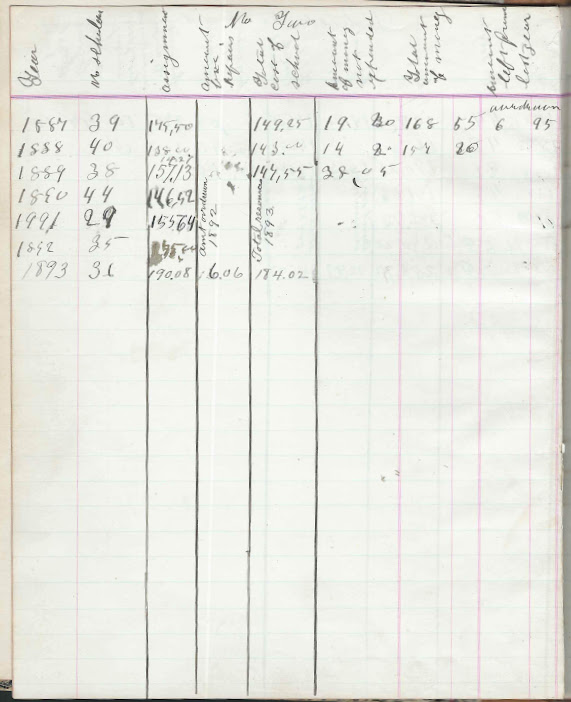 No Two
Year
No scholars
assigned
amount for repairs
Total cost of school
Amount of money not expended
Total amount of money
Amount left from last year
overdrawn
1887 39 145,50 149,25 19 30 168 55 6 95
1888 40 143.00 14 2 157 20
1889 38 157,13 147,55 38 05
1890 44 146,52
1991 29 155,64
1892 35
1893 31 190.08 6.06 184.02
Amt overdrawn 1892
Total received 1893